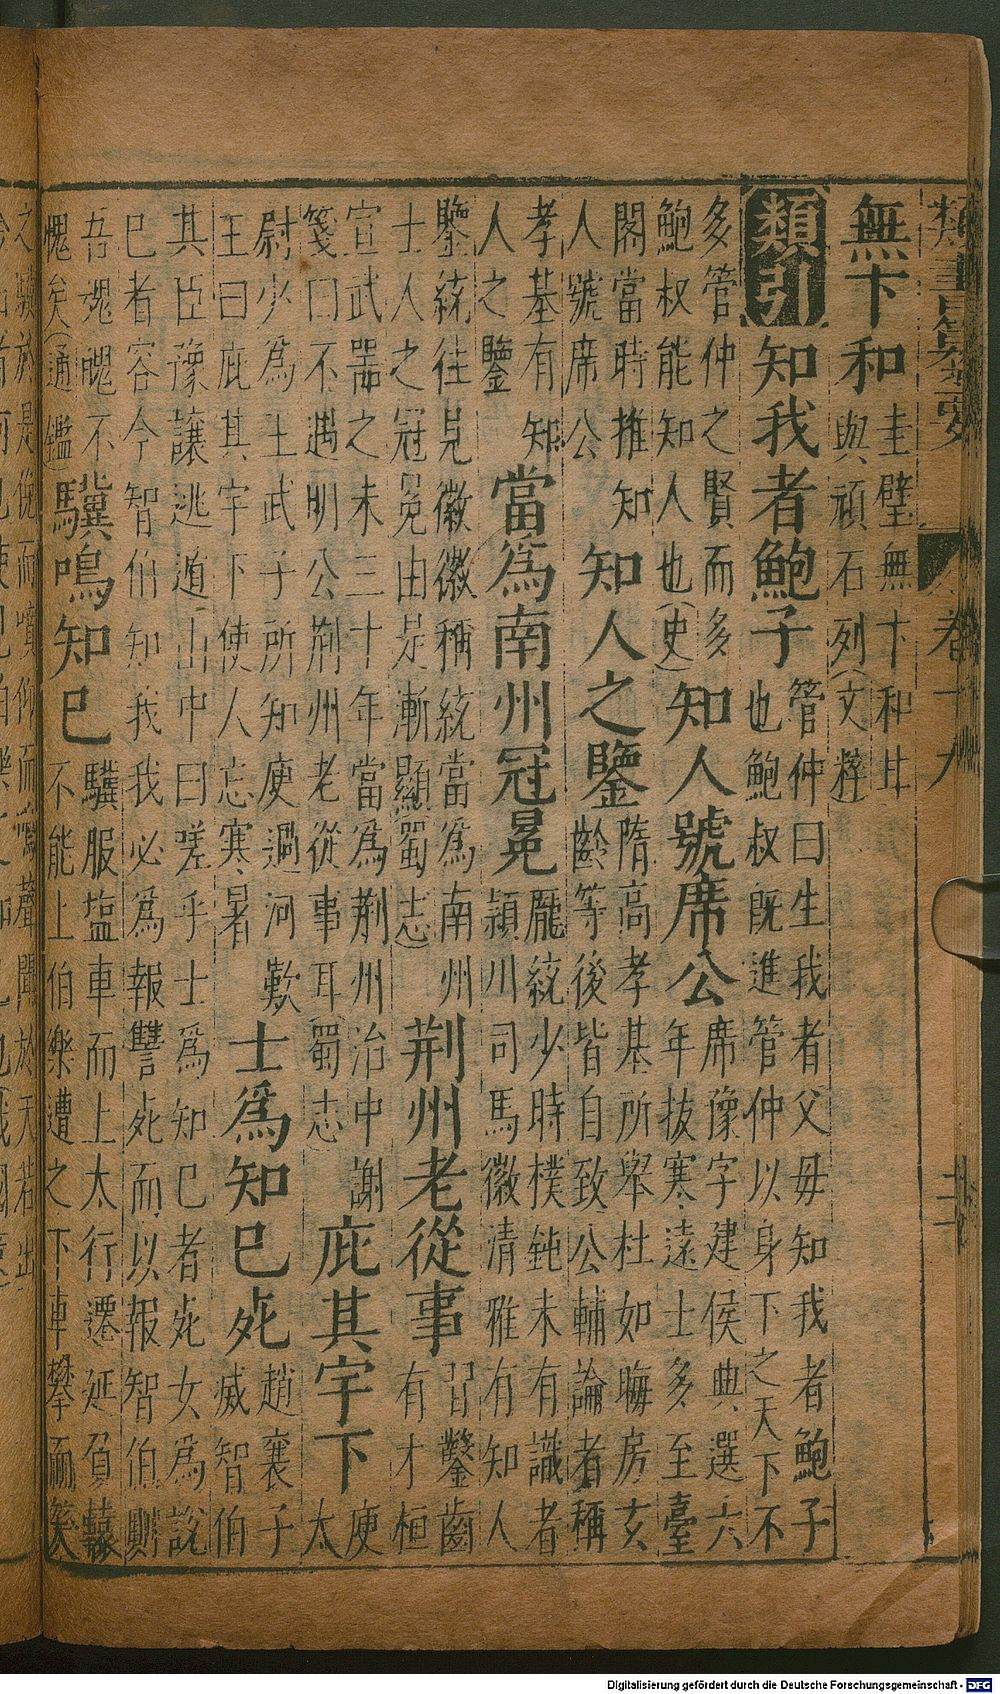 類書纂要 卷十九
無下和 圭璧無卞和甘
與頑石列(文粹)
類引 知我者鮑子 管仲曰生我者父母知我者鮑子
也鮑叔既進管仲以身下之天下不
多管仲之賢而多
鮑叔能知人也(史) 知人號席公 席豫字建侯典選六
年拔寒遠士多至臺
閣當時推知
人號席公 知人之鑒 隋高孝基所舉杜如晦房玄
齡等後皆自致公輔論者稱
孝基有知
人之鑒 當爲南州冠冕 龐統少時樸鈍未有識者
潁川司馬徽清雅有知人
鑒統往見徽徽稱統當爲南州
士人之冠冕由是漸顯(蜀志) 荆州老從事 習鑿齒
有才桓
宣武器之未三十年當爲荆州治中謝
箋曰不遇明公荆州老從事耳(蜀志) 庇其宇下 庾
太
尉少爲王武子所知庾過河歎
王曰庇其宇下使人忘寒暑 士爲知巳死 趙襄子
滅智伯
其臣豫讓逃遁山中曰嗟乎士爲知巳者死女爲說
巳者容今智伯知我我必爲報讐死而以報智伯則
吾魂魄不
愧矣(通鑑) 驥鳴知巳 驥服塩車而上太行遷延負轅
不能上伯樂遭之下車攀而哭
之驥於是俛而噴仰而鳴聲聞於天若出
Digitalisierung gefördert durch die Deutsche Forschungsgemeinschaft - DFG